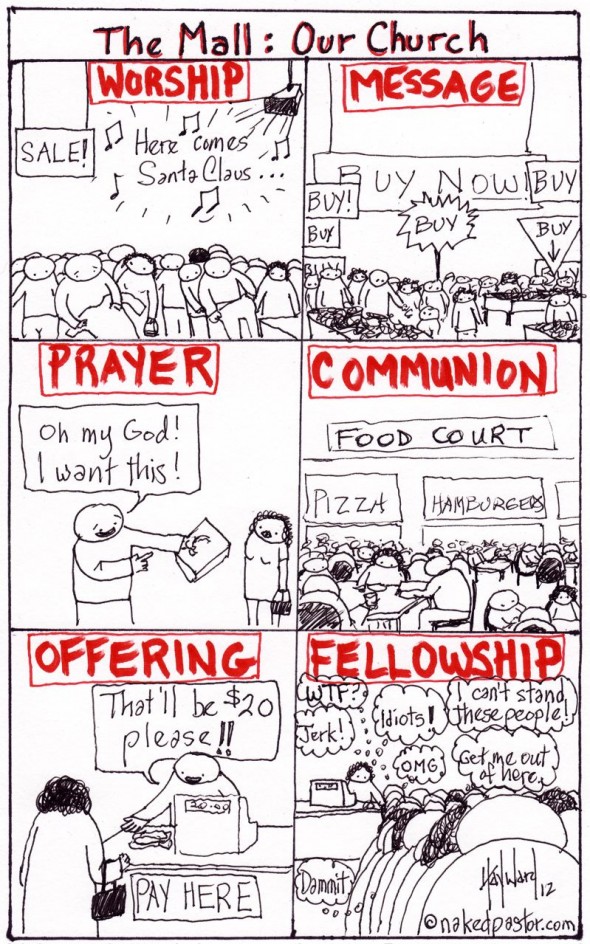 The Mall: Our Church
WORSHIP
SALE!
Here comes
Santa Claus...
MESSAGE
BUY NOW!
BUY
BUY!
BUY
BUY
BUY
PRAYER
Oh my God!
I want this!
COMMUNION
FOOD COURT
PIZZA
HAMBURGERS
OFFERING
That'll be $20
please!!
20.00
PAY HERE
FELLOWSHIP
WTF?
Jerk!
Idiots!!
I can't stand
these people!
OMG
Get me out
of here.
Dammit
Hayward 12
©nakedpastor.com